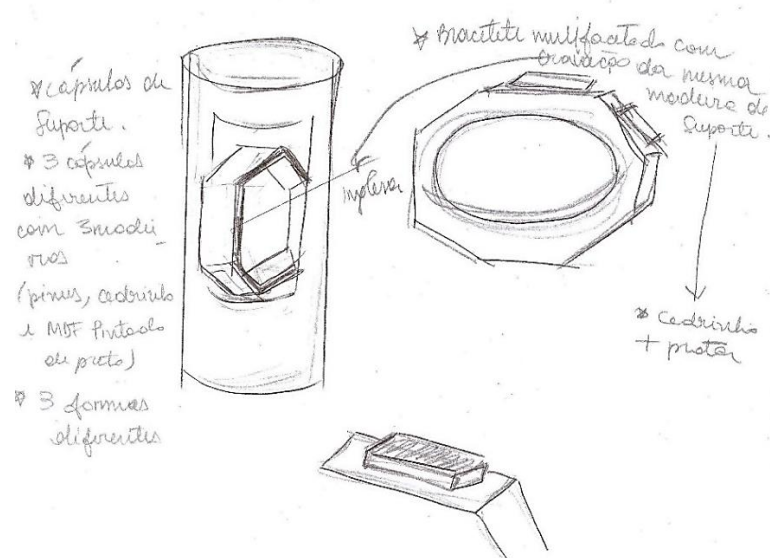 * cápsulas de
Suporte.
* 3 cápsulas
diferentes
com 3 madei
ras
(pinus, cedrinho
e MDF Pintado
de preto)
* 3 formas
diferentes
* Bracelete multifacetado com
da mesma
madeira do
Suporte.
* cedrinho
+ prata